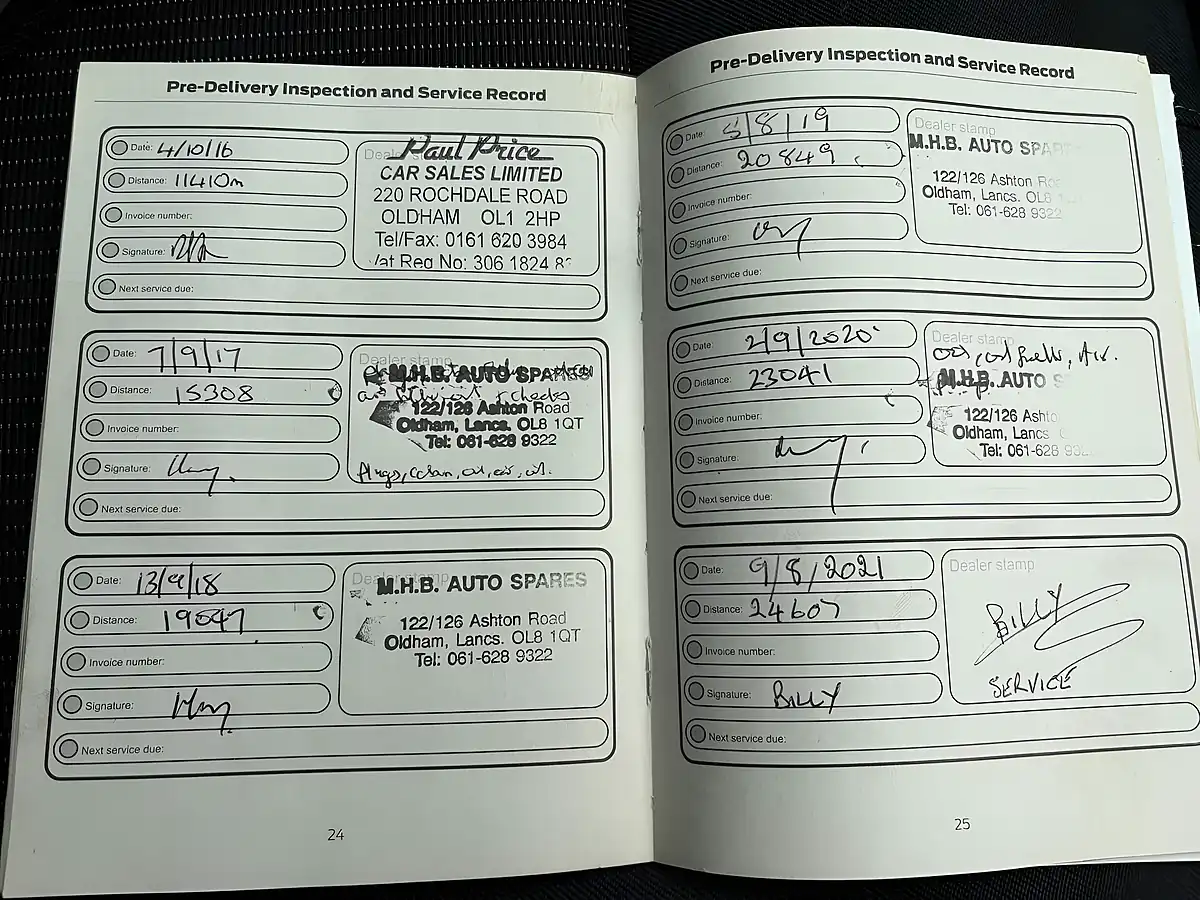 Pre-Delivery Inspection and Service Record
Date: 4/10/16
Distance: 11410m
Invoice number:
Signature:
Next service due:
Dealer stamp
Paul Price
CAR SALES LIMITED
220 ROCHDALE ROAD
OLDHAM OL1 2HP
Tel/Fax: 0161 620 3984
Vat Reg No: 306 1824
Date: 7/9/17
Distance: 15308
Invoice number:
Signature:
Next service due:
Dealer stamp
M.H.B. AUTO SPARES
& checks
122/126 Ashton Road
Oldham, Lancs. OL8 1QT
Tel: 061-628 9322
Plugs, oil, air,
Date: 13/9/18
Distance: 19047
Invoice number:
Signature:
Next service due:
Dealer stamp
M.H.B. AUTO SPARES
122/126 Ashton Road
Oldham, Lancs. OL8 1QT
Tel: 061-628 9322
24
Pre-Delivery Inspection and Service Record
Date: 5/8/19
Distance: 20849
Invoice number:
Signature:
Next service due:
Dealer stamp
M.H.B. AUTO SPAR
122/126 Ashton Ro
Oldham, Lancs. OL8
Tel: 061-628 9322
Date: 2/9/2020
Distance: 23041
Invoice number:
Signature:
Next service due:
Dealer stamp
Air.
M.H.B. AUTO S
122/126 Ashto
Oldham, Lancs
Tel: 061-628 932
Date: 9/8/2021
Distance: 24607
Invoice number:
Signature: BILLY
Next service due:
Dealer stamp
BILLY
SERVICE
25